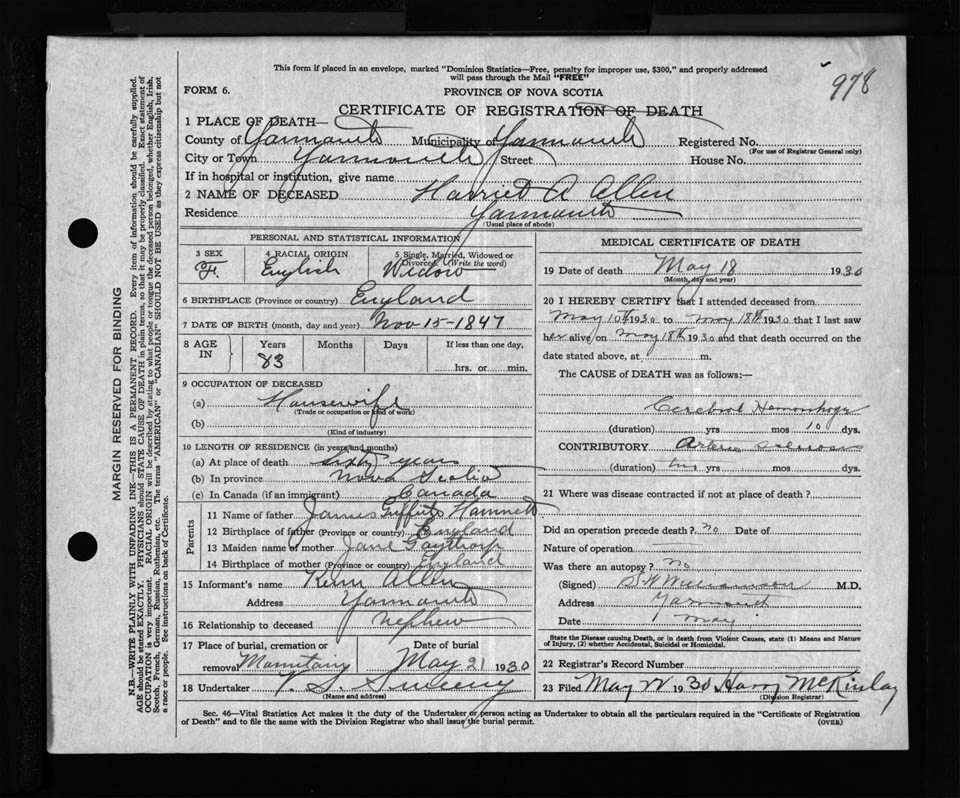 This form if placed in an envelope, marked "Dominion Statistics—Free, penalty for improper use, $300," and properly addressed
will pass through the Mail "FREE"
978
FORM 6.
PROVINCE OF NOVA SCOTIA
CERTIFICATE OF REGISTRATION OF DEATH
1 PLACE OF DEATH—
County of Yarmouth Municipality of Yarmouth Registered No.
(For use of Registrar General only)
City or Town Yarmouth Street House No.
If in hospital or institution, give name
2 NAME OF DECEASED Harriet A Allen
Residence Yarmouth
(Usual place of abode)
PERSONAL AND STATISTICAL INFORMATION
3 SEX 4 RACIAL ORIGIN 5 Single, Married, Widowed or
Divorced. (Write the word)
F. English Widow
6 BIRTHPLACE (Province or country) England
7 DATE OF BIRTH (month, day and year) Nov 15-1847
8 AGE IN Years Months Days If less than one day,
83 hrs. or min.
9 OCCUPATION OF DECEASED
(a) Housewife
(Trade or occupation or kind of work)
(b)
(Kind of industry)
10 LENGTH OF RESIDENCE (in years and months)
(a) At place of death sixty years
(b) In province Nova Scotia
(c) In Canada (if an immigrant) Canada
Parents
11 Name of father James Hamnett
12 Birthplace of father (Province or country) England
13 Maiden name of mother Jane
14 Birthplace of mother (Province or country) England
15 Informant's name Allen
Address Yarmouth
16 Relationship to deceased nephew
17 Place of burial, cremation or Date of burial
removal May 21 1930
18 Undertaker V. S. Sweeny
(Name and address)
MEDICAL CERTIFICATE OF DEATH
19 Date of death May 18 1930
(Month, day and year)
20 I HEREBY CERTIFY that I attended deceased from
May 10th 1930 to May 18th 1930 that I last saw
her alive on May 18th 1930 and that death occurred on the
date stated above, at m.
The CAUSE of DEATH was as follows:—
Cerebral Hemorrhage
(duration) yrs mos 10 dys.
CONTRIBUTORY
(duration) yrs mos dys.
21 Where was disease contracted if not at place of death?
Did an operation precede death? no Date of
Nature of operation
Was there an autopsy? no
(Signed) M.D.
Address Yarmouth
Date May
State the Disease causing Death, or in death from Violent Causes, state (1) Means and Nature
of Injury, (2) whether Accidental, Suicidal or Homicidal.
22 Registrar's Record Number
23 Filed May 22 1930 Harry McKinlay
(Division Registrar)
Sec. 46—Vital Statistics Act makes it the duty of the Undertaker or person acting as Undertaker to obtain all the particulars required in the "Certificate of Registration
of Death" and to file the same with the Division Registrar who shall issue the burial permit.
(OVER)
MARGIN RESERVED FOR BINDING
N.B.—WRITE PLAINLY WITH UNFADING INK—THIS IS A PERMANENT RECORD. Every item of information should be carefully supplied.
AGE should be stated EXACTLY. PHYSICIANS should STATE CAUSE OF DEATH in plain terms, so that it may be properly classified. Exact statement of
OCCUPATION is very important. RACIAL ORIGIN will be described by stating to what people or tongue the deceased person belonged, whether English, Irish,
Scotch, French, German, Russian, Ruthenian, etc. The terms "AMERICAN" or "CANADIAN" SHOULD NOT BE USED as they express citizenship but not
a race or people. See instructions on back of Certificate.